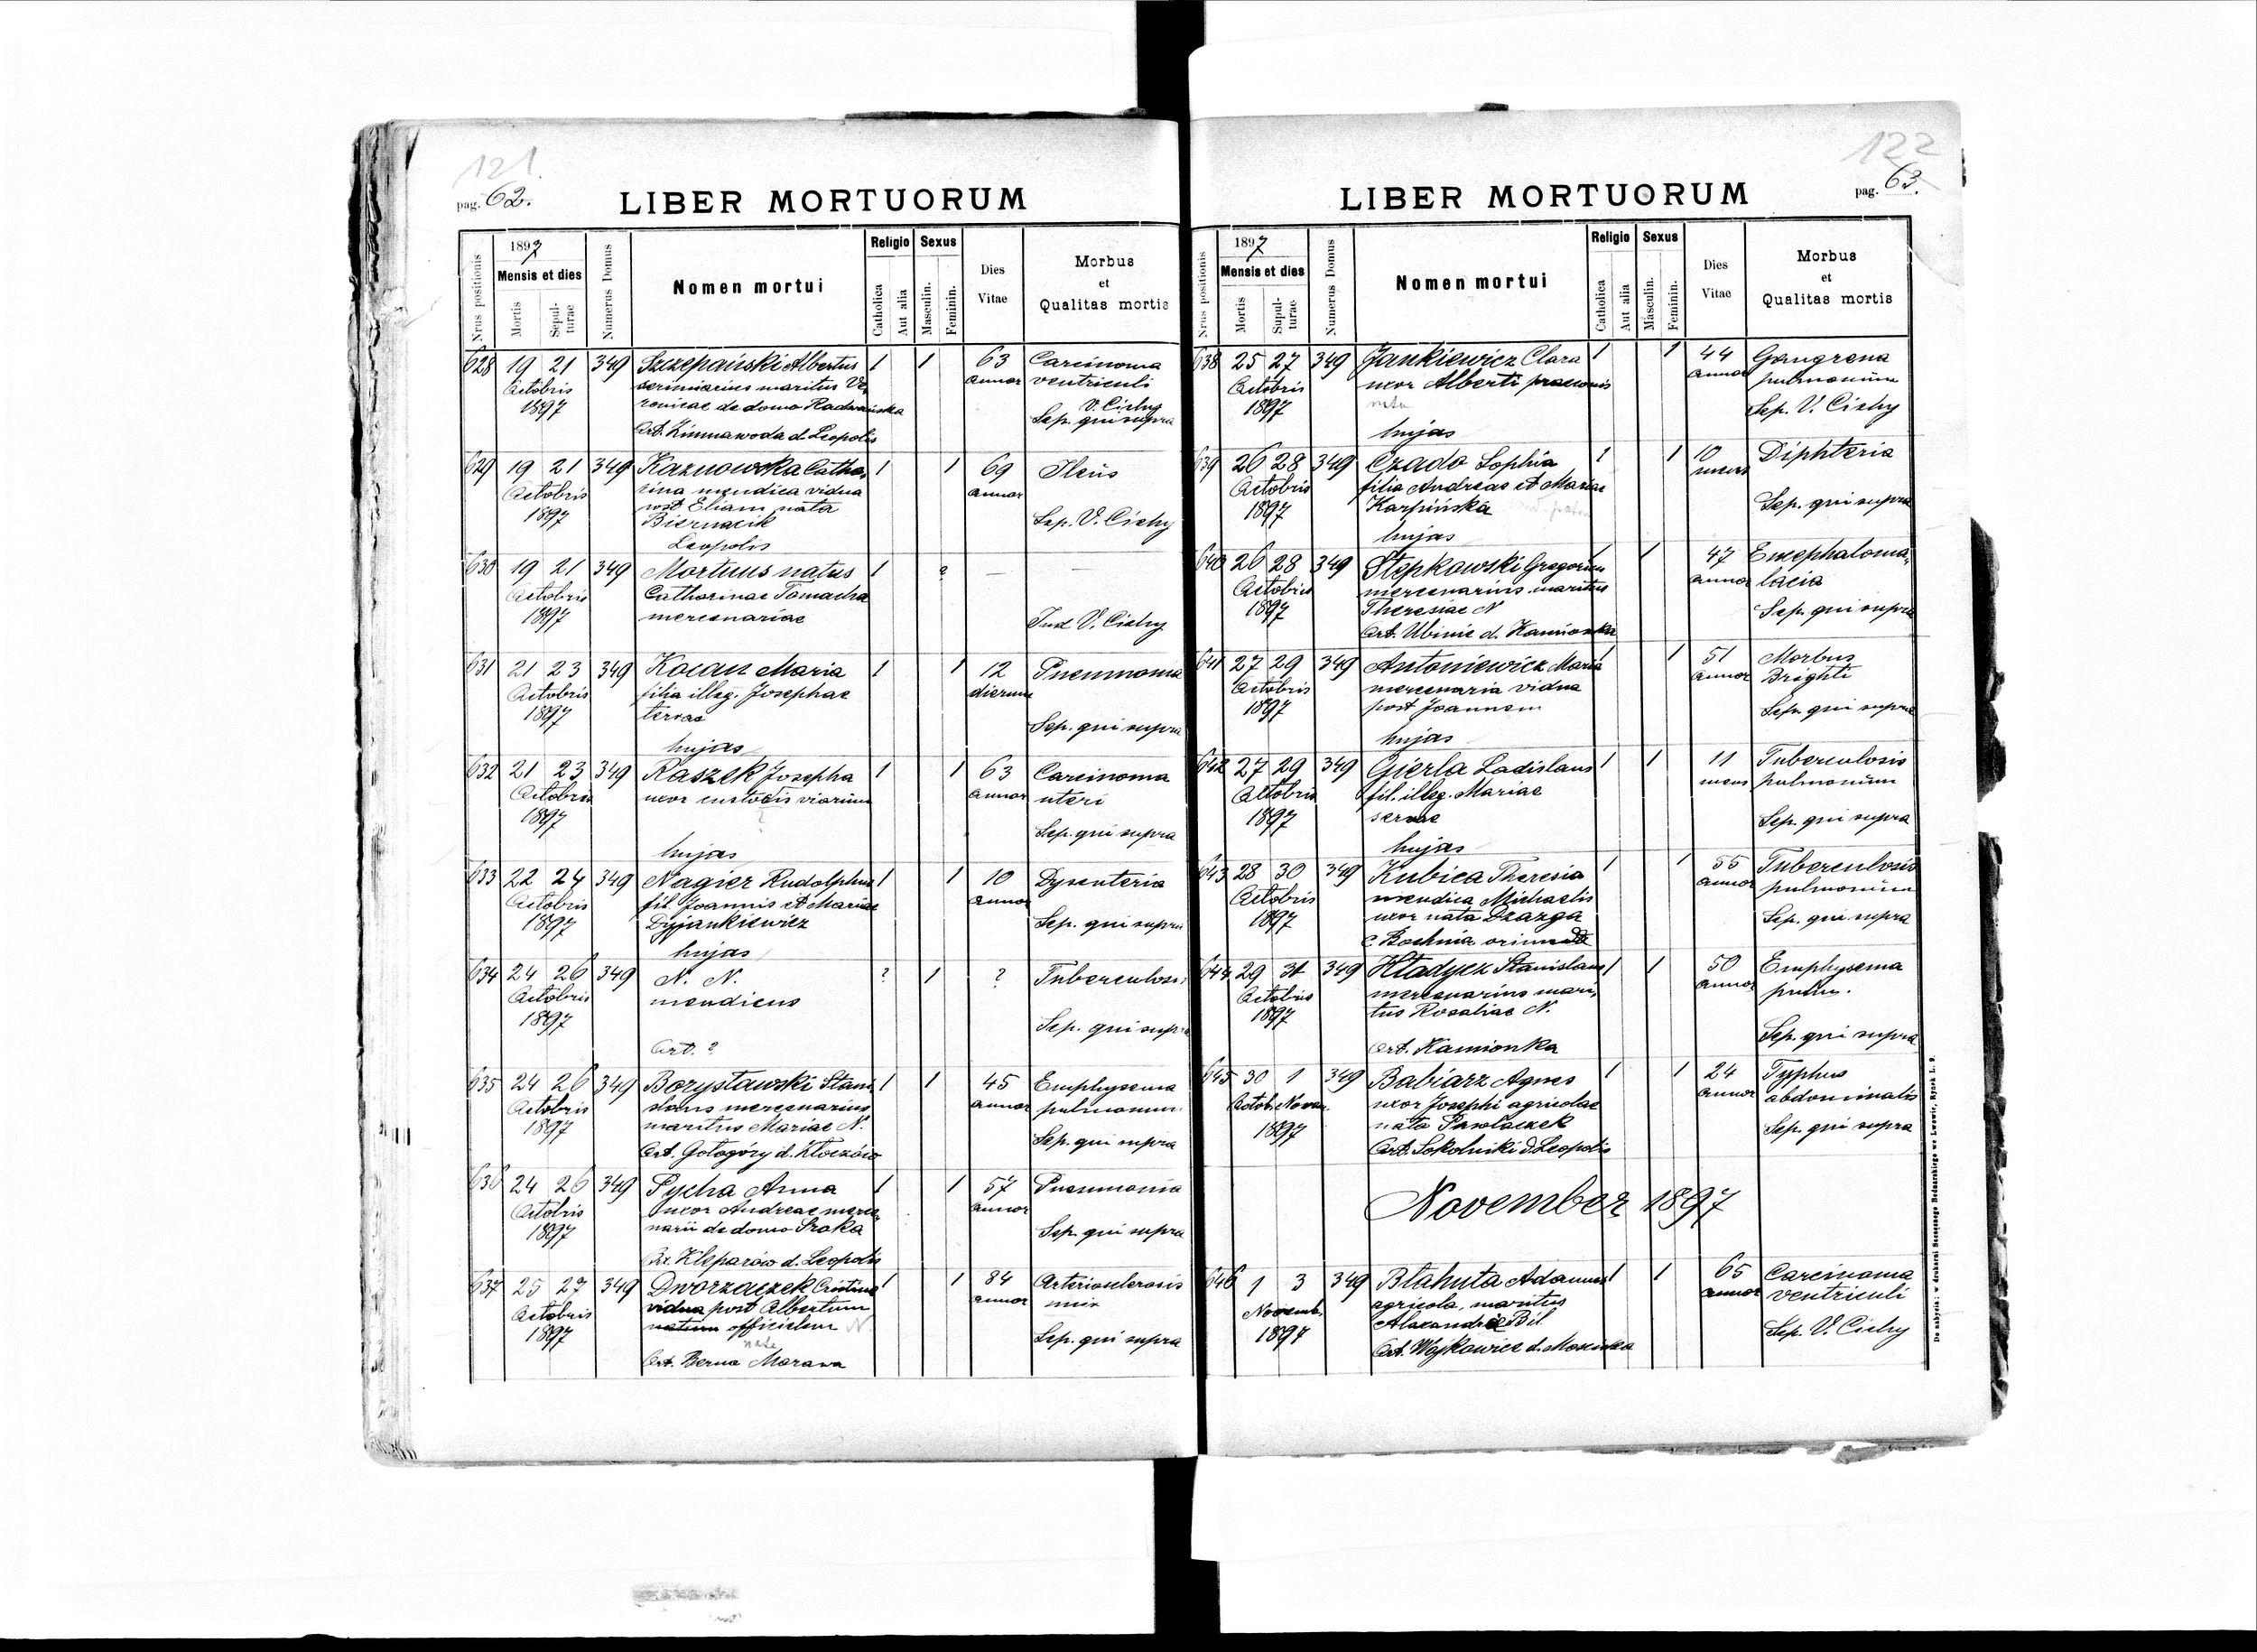 121.
pag. 62.
LIBER MORTUORUM
Nrus positionis
1897
Mensis et dies
Mortis
Sepul-
turae
Numerus Domus
Nomen mortui
Religio
Catholica
Aut alia
Sexus
Masculin.
Feminin.
Dies
Vitae
Morbus
et
Qualitas mortis
628 19 21 349 Szczepański Albertus 1 1 63 Carcinoma
Octobris scriniarius maritus Ve- annor ventriculi
1897 ronicae de domo Radwańska V. Cichy
Sep. qui supra
Ort. Zimnawoda d. Leopolis
629 19 21 349 Kaznowska Catha- 1 1 69 Ileus
Octobris rina mendica vidua annor
1897 post Eliam nata
Biernacik Sep. V. Cichy
Leopolis
630 19 21 349 Mortuus natus 1 ? — —
Octobris Catharinae Tomacha
1897 mercenariae Ind V. Cichy
631 21 23 349 Kocan Maria 1 1 12 Pneumonia
Octobris filia illeg. Josephae dierum
1897 servae Sep. qui supra
hujas
632 21 23 349 Raszek Josepha 1 1 63 Carcinoma
Octobris uxor custodis viarum annor uteri
1897 Sep. qui supra
hujas
633 22 24 349 Nagier Rudolphus 1 1 10 Dysenteria
Octobris fil. Joannis et Mariae annor
1897 Dyjankiewicz Sep. qui supra
hujas
634 24 26 349 N. N. ? 1 ? Tuberculosis
Octobris mendicus
1897 Sep. qui supra
Ort. ?
635 24 26 349 Borysławski Stani- 1 1 45 Emphysema
Octobris slaus mercenarius annor pulmonum
1897 maritus Mariae N. Sep. qui supra
Ort. Gołogóry d. Złoczów
636 24 26 349 Pycha Anna 1 1 57 Pneumonia
Octobris uxor Andreae merce- annor
1897 narii de domo Sroka Sep. qui supra
Ort. Kleparów d. Leopolis
637 25 27 349 Dworzaczek Cristina 1 1 84 Arteriosclerosis
Octobris vidua post Albertum annor
1897 natum officialem N. Sep. qui supra
nata
Ort. Berno Morawa
122
pag. 63.
LIBER MORTUORUM
Nrus positionis
1897
Mensis et dies
Mortis
Supul-
turae
Numerus Domus
Nomen mortui
Religio
Catholica
Aut alia
Sexus
Masculin.
Feminin.
Dies
Vitae
Morbus
et
Qualitas mortis
638 25 27 349 Jankiewicz Clara 1 1 44 Gangrena
Octobris uxor Alberti praeconis annor pulmonum
1897 nata Sep. V. Cichy
hujas
639 26 28 349 Czado Sophia 1 1 10 Diphteria
Octobris filia Andreae et Mariae mens
1897 Karpińska Sep. qui supra
hujas
640 26 28 349 Stepkowski Gregorius 1 1 47 Encephaloma-
Octobris mercenarius maritus annor lacia
1897 Theresiae N Sep. qui supra
Ort. Ubinie d. Kamionka
641 27 29 349 Antoniewicz Maria 1 1 51 Morbus
Octobris mercenaria vidua annor Brighti
1897 post Joannem Sep. qui supra
hujas
642 27 29 349 Gierla Ladislaus 1 1 11 Tuberculosis
Octobris fil. illeg. Mariae mens pulmonum
1897 servae Sep. qui supra
hujas
643 28 30 349 Kubica Theresia 1 1 55 Tuberculosis
Octobris mendica Michaelis annor pulmonum
1897 uxor nata Drazga Sep. qui supra
e Bochnia oriunda
644 29 31 349 Kładycz Stanislaus 1 1 50 Emphysema
Octobris mercenarius mari- annor pulm.
1897 tus Rosaliae N. Sep. qui supra
Ort. Kamionka
645 30 1 349 Babiarz Agnes 1 1 24 Typhus
Octob. Novem. uxor Josephi agricolae annor abdominalis
1897 nata Pawlaczek Sep. qui supra
Ort. Sokolniki d. Leopolis
November 1897
646 1 3 349 Błahuta Adamus 1 1 65 Carcinoma
Novemb. agricola, maritus annor ventriculi
1897 Alexandra Bil Sep. V. Cichy
Ort. Wojkowice d. Mościska
Do nabycia: w drukarni Szczęsnego Bednarskiego we Lwowie, Rynek L. 9.